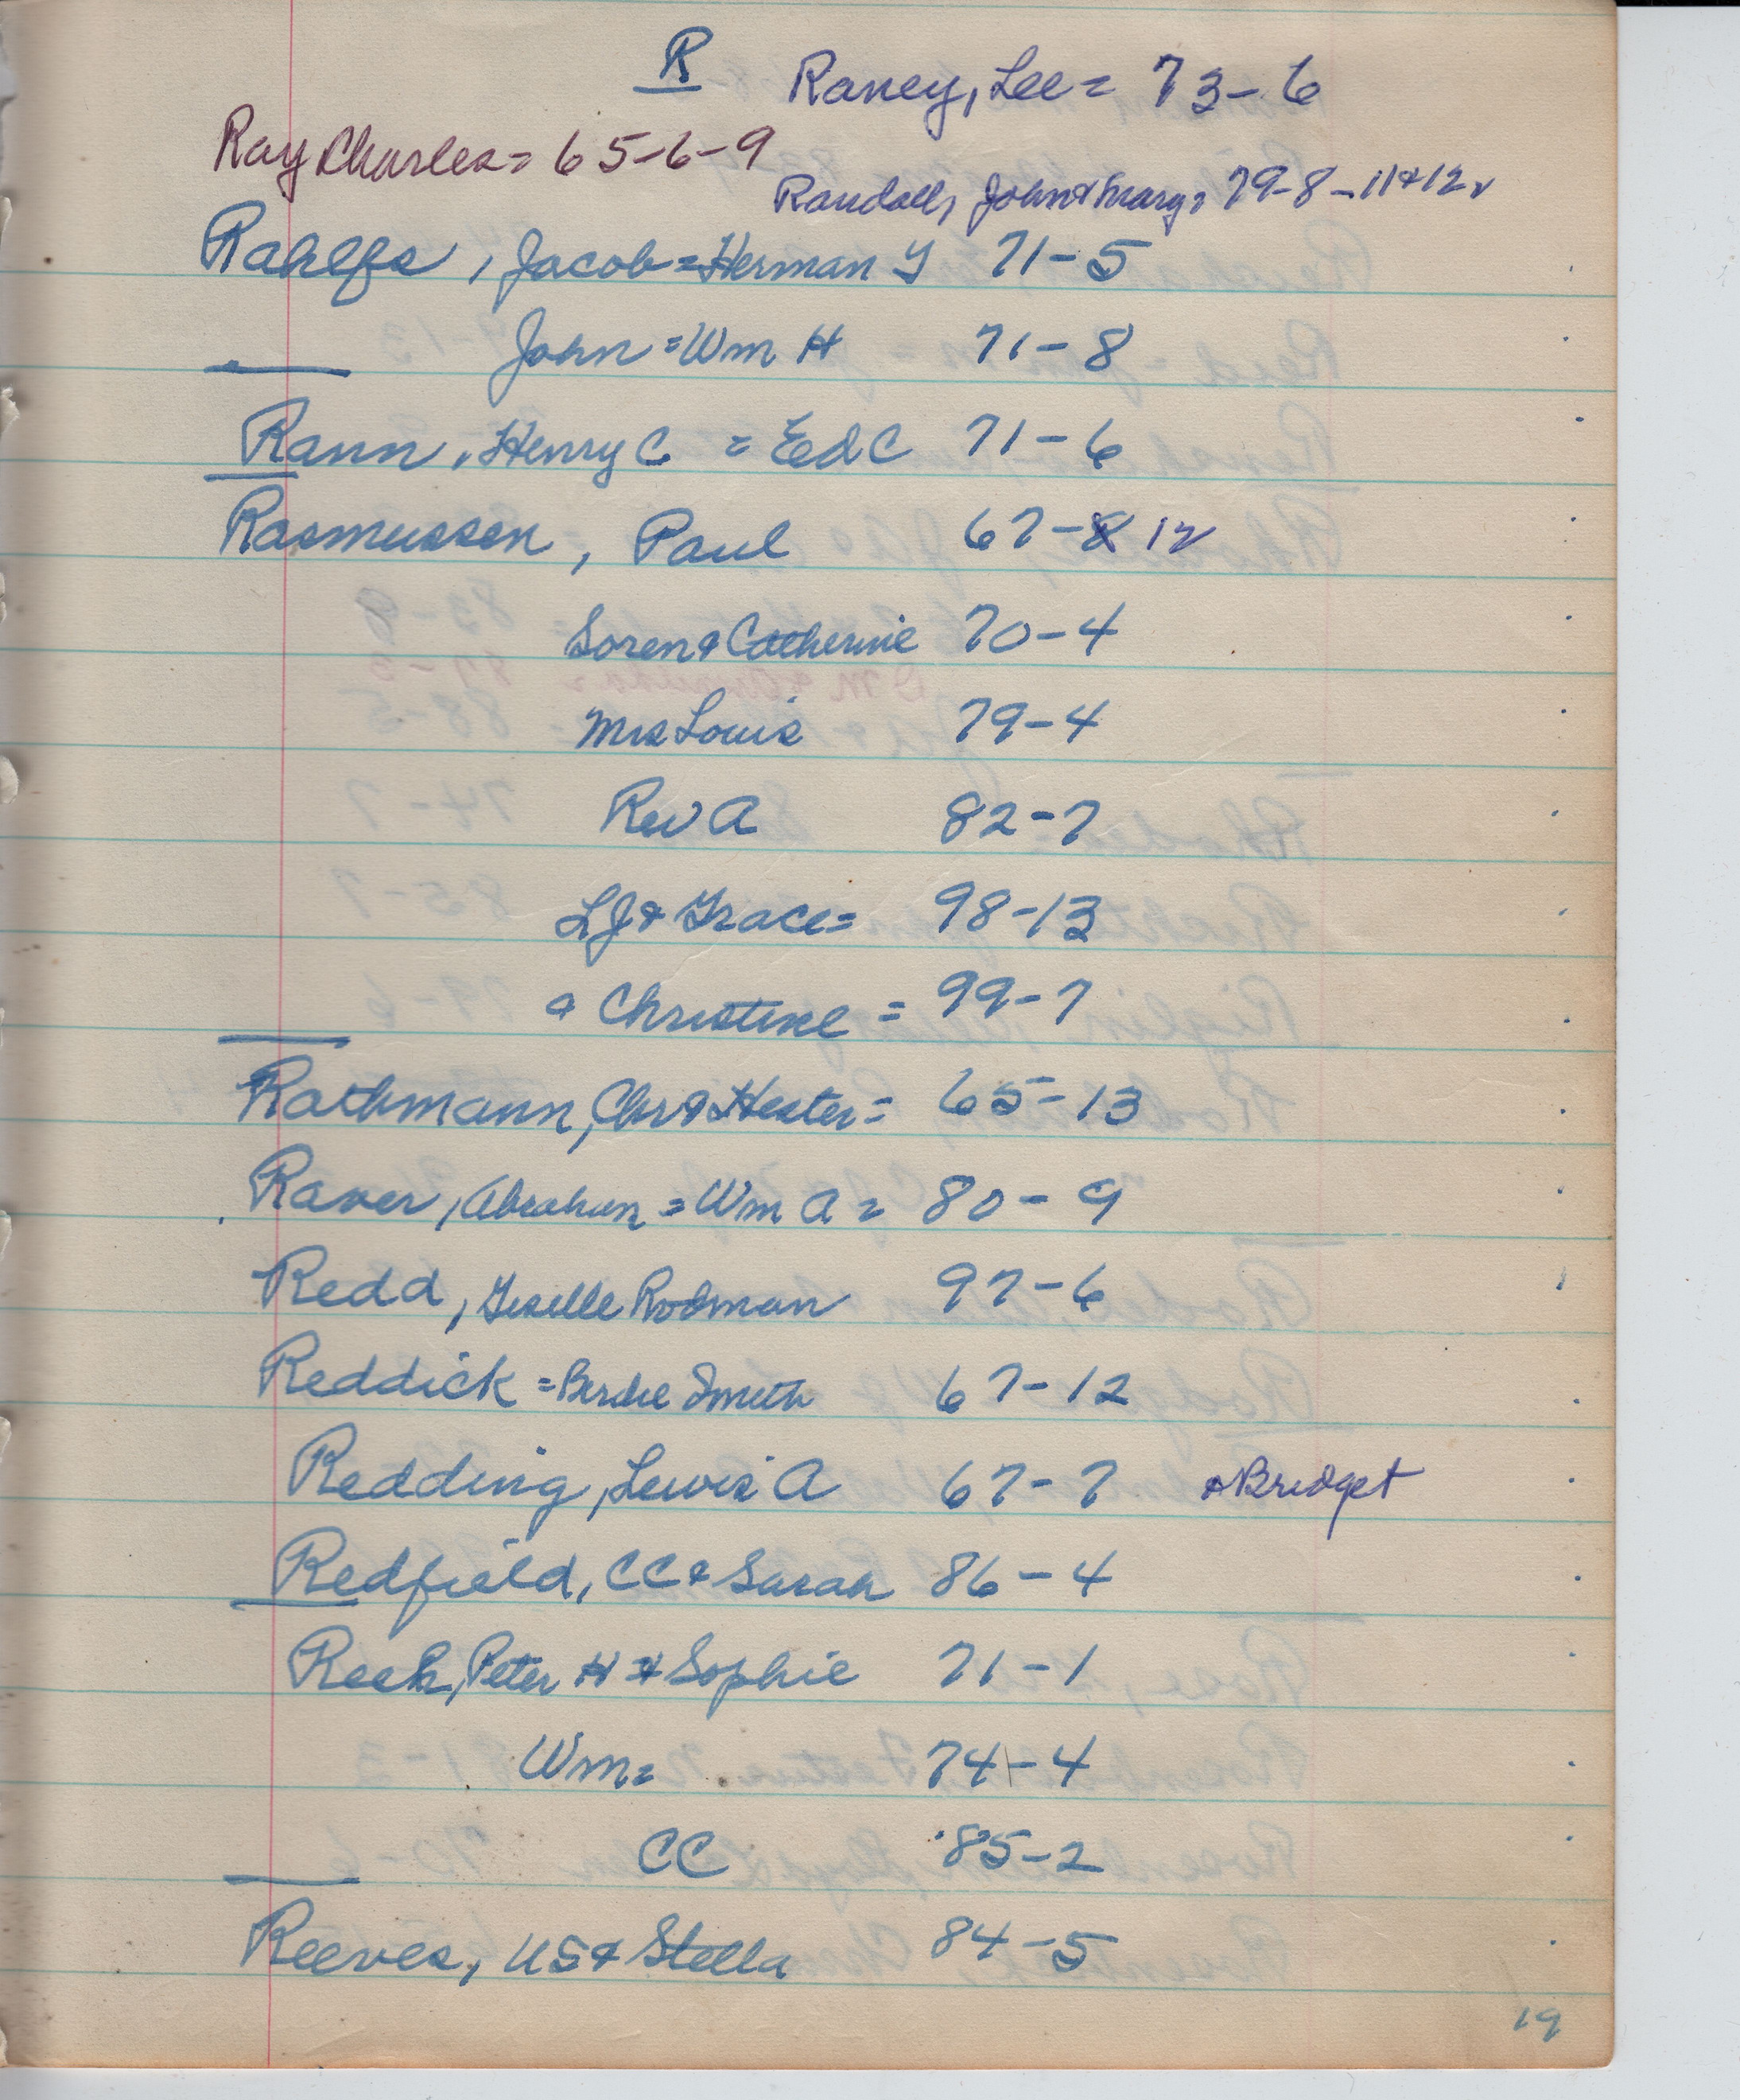 R
Raney, Lee = 73-6
Ray Charles = 65-6-9
Randall, John & Mary = 79-8-11&12
Rahlfs, Jacob = Herman Y 71-5
John = Wm H 71-8
Rann, Henry C = Ed C 71-6
Rasmussen, Paul 67-8 12
Soren & Catherine 70-4
Mrs Louis 79-4
Rev A 82-7
LJ & Grace = 98-13
& Christine = 99-7
Rathmann, Chr & Hester = 65-13
Raver, Abraham = Wm A = 80-9
Redd, Giselle Rodman 97-6
Reddick = Berdie Smith 67-12
Redding, Lewis A 67-7 & Bridget
Redfield, CC & Sarah 86-4
Reeh, Peter H & Sophie 71-1
Wm = 74-4
CC 85-2
Reeves, US & Stella 84-5
19